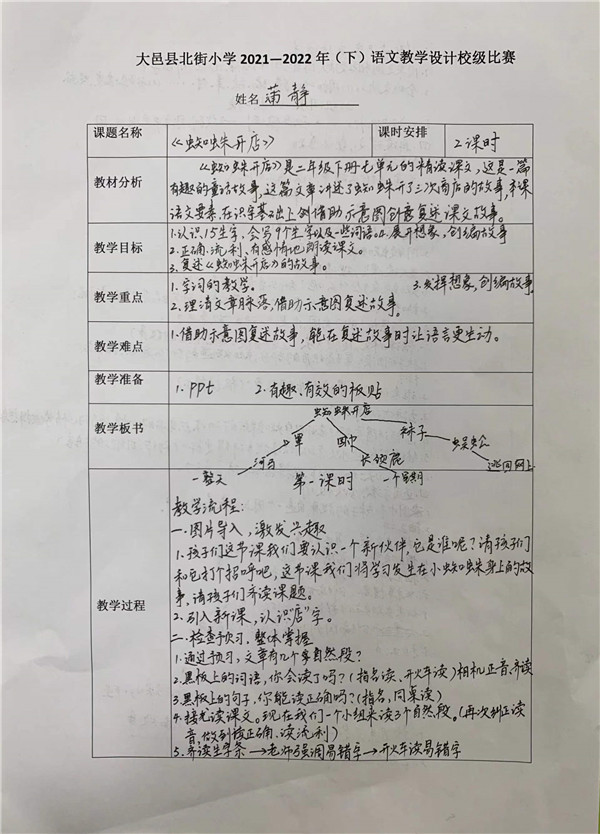 大邑县北街小学 2021—2022 年（下）语文教学设计校级比赛
姓名 静
课题名称 《蜘蛛开店》 课时安排 2课时
教材分析
《蜘蛛开店》是二年级下册七单元的精读课文，这是一篇
有趣的童话故事，这篇文章讲述了蜘蛛开了三次商店的故事，本课
语文要素，在识字基础上创借助示意图创意复述课文故事。
教学目标
1.认识15生字，会写9个生字以及一些词语。4.展开想象，创编故事
2.正确、流利、有感情地朗读课文。
3.复述《蜘蛛开店》的故事。
教学重点
1.字词的教学。 3.发挥想象，创编故事。
2.理清文章脉落，借助示意图复述故事。
教学难点
1.借助示意图复述故事，能在复述故事时让语言更生动。
教学准备
1.PPt 2.有趣、有效的板贴
教学板书
蜘蛛开店
罩 围巾 袜子 蜈蚣
河马 长颈鹿 逃回网上
一整天 一个星期
第一课时
教学过程
教学流程：
一.图片导入，激发兴趣
1.孩子们这节课我们要认识一个新伙伴，它是谁呢？请孩子们
和它打个招呼吧，这节课我们将学习发生在小蜘蛛身上的故
事，请孩子们齐读课题。
2.引入新课，认识“店”字。
二.检查预习，整体掌握
1.通过预习，文章有几个拿自然段？
2.黑板上的词语，你会读了吗？（指名读、开火车读）相机正音、齐读
3.黑板上的句子，你能读正确吗？（指名，同桌读）
4.接龙读课文。现在我们一个小组来读3个自然段。（再次纠正读
音，做到读正确、读流利）
5.齐读生字条→老师强调易错字→开火车读易错字